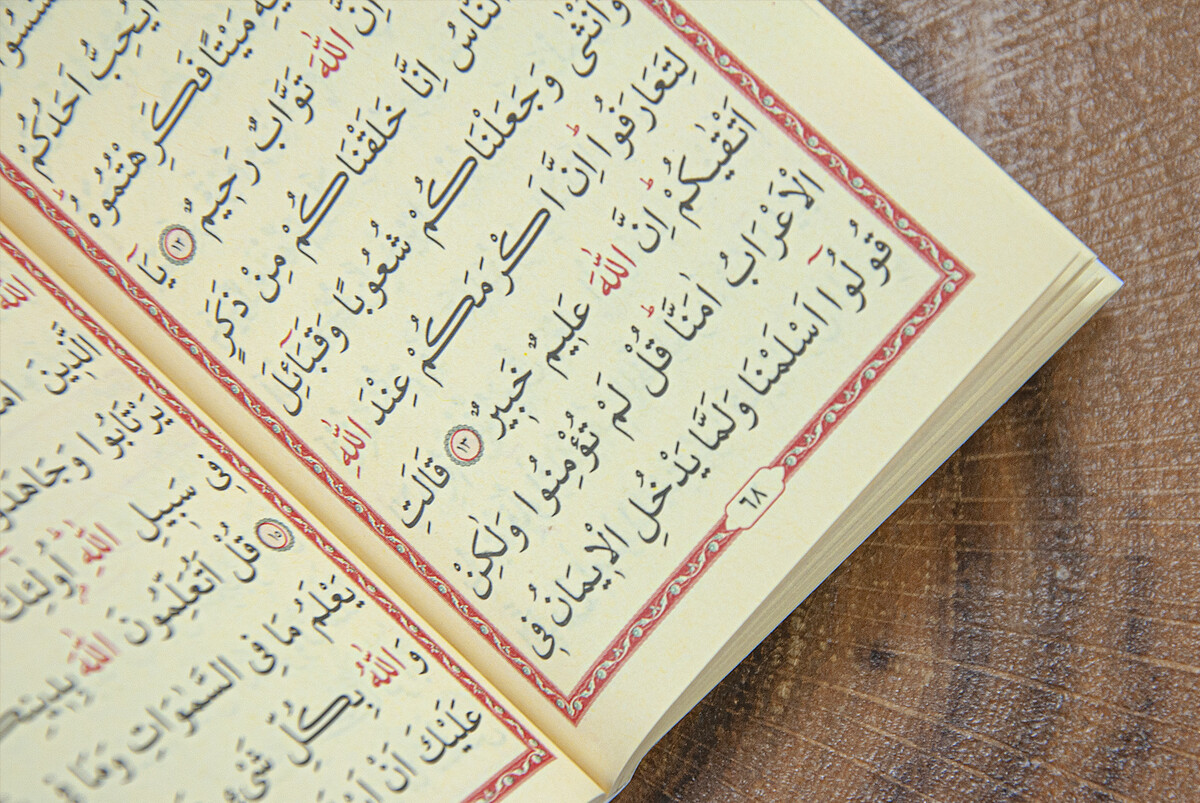 اَيُحِبُّ اَحَدُكُمْ
مَيْتًا فَكَرِهْتُمُوهُۜ
اِنَّ اللّٰهَ تَوَّابٌ رَحِيمٌ ﴿١٢﴾ يَٓا
النَّاسُ اِنَّا خَلَقْنَاكُمْ مِنْ ذَكَرٍ
وَاُنْثٰى وَجَعَلْنَاكُمْ شُعُوبًا وَقَبَٓائِلَ
لِتَعَارَفُواۜ اِنَّ اَكْرَمَكُمْ عِنْدَ اللّٰهِ
اَتْقٰيكُمْۜ اِنَّ اللّٰهَ عَلِيمٌ خَبِيرٌ ﴿١٣﴾ قَالَتِ
الْاَعْرَابُ اٰمَنَّاۜ قُلْ لَمْ تُؤْمِنُوا وَلٰكِنْ
قُولُٓوا اَسْلَمْنَا وَلَمَّا يَدْخُلِ الْاِيمَانُ فِي
٦٨
اللّٰهَ
الَّذِينَ
يَرْتَابُوا
فِي سَبِيلِ اللّٰهِۜ اُولٰٓئِكَ
﴿١٥﴾ قُلْ اَتُعَلِّمُونَ اللّٰهَ
يَعْلَمُ مَا فِي السَّمٰوَاتِ وَمَا
وَاللّٰهُ بِكُلِّ شَيْءٍ
عَلَيْكَ اَنْ